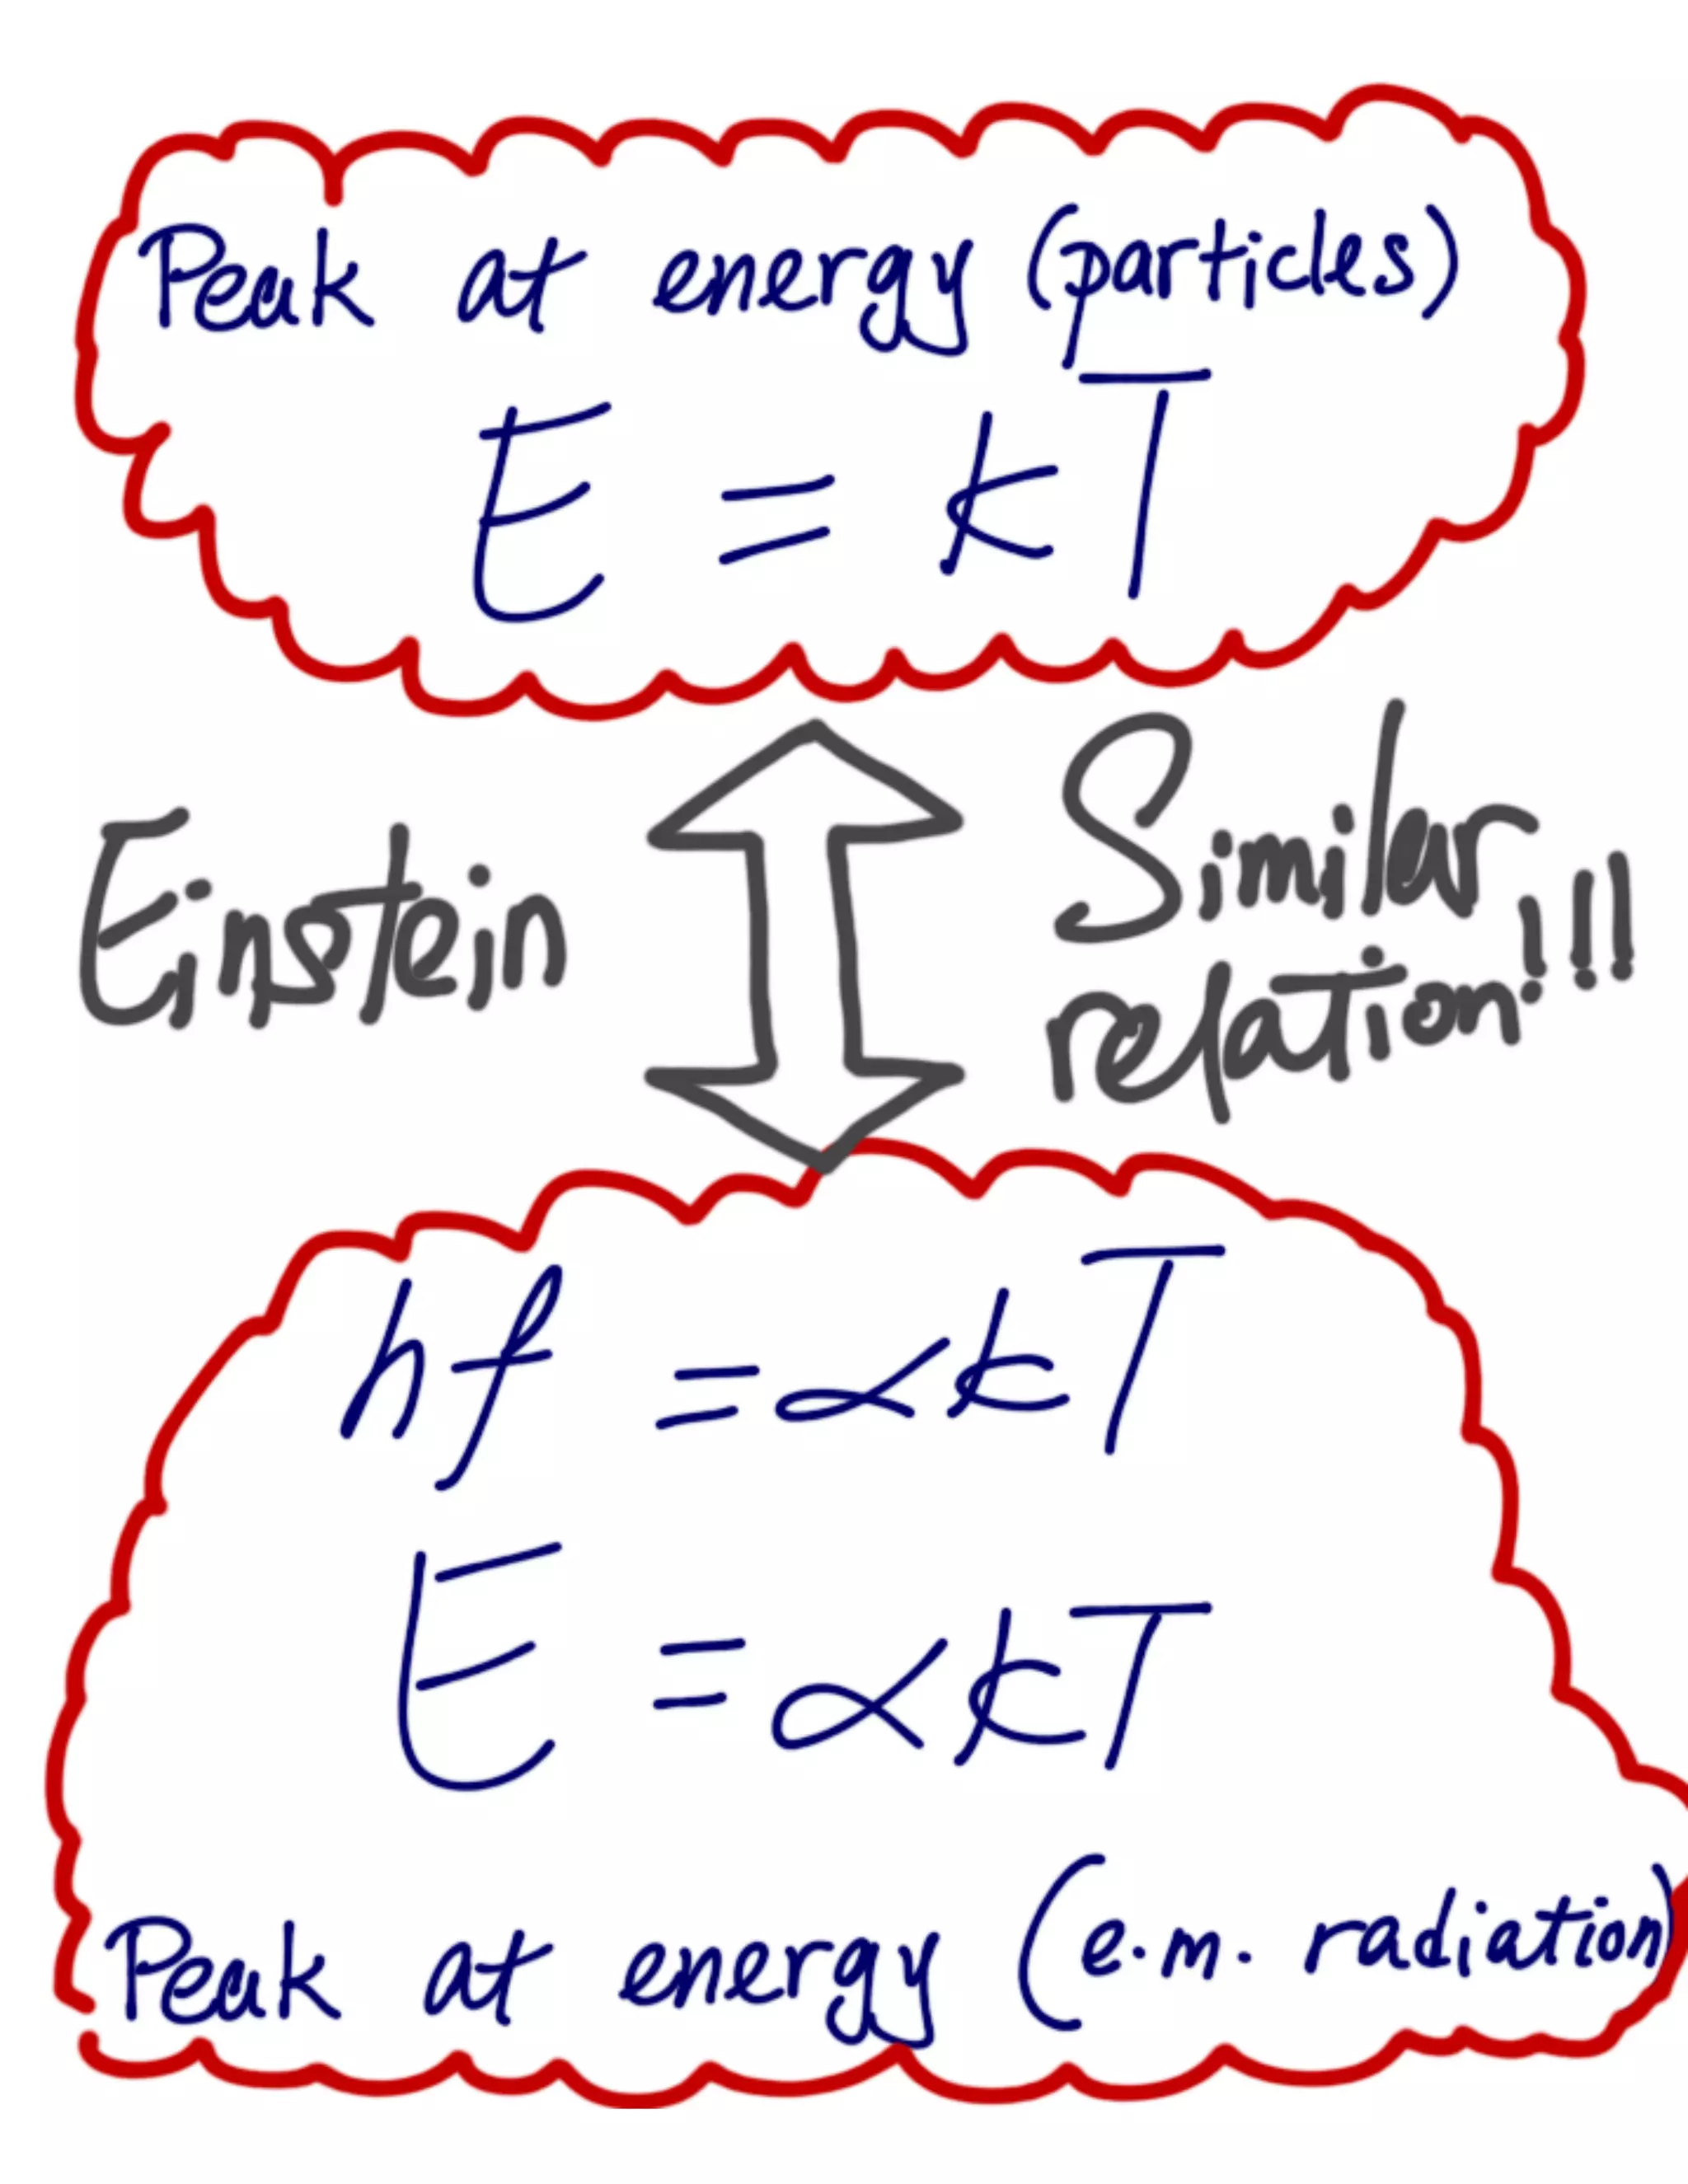 Peak at energy (particles)
E = kT
Einstein
Similar
relation!!!
hf = αkT
E = αkT
Peak at energy (e.m. radiation)